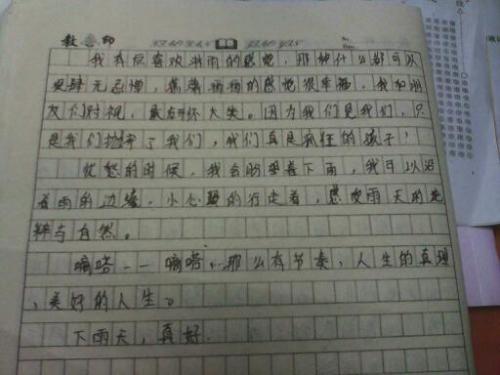 我有反喜欢淋雨的感觉，那种什么都可以
肆无忌惮，痛痛的感觉很幸福，我和朋
友们对视，哈大笑。因为我们是我们，只
是我们了我们，我们真是疯狂的孩子！
忧愁的时候，我会盼望着下雨，我可以沿
着雨的边缘，小心的行走着，感受雨天的
与自然。
嘀嗒——嘀嗒，那么有节奏，人生的真理
，美好的人生。
下雨天，真好。